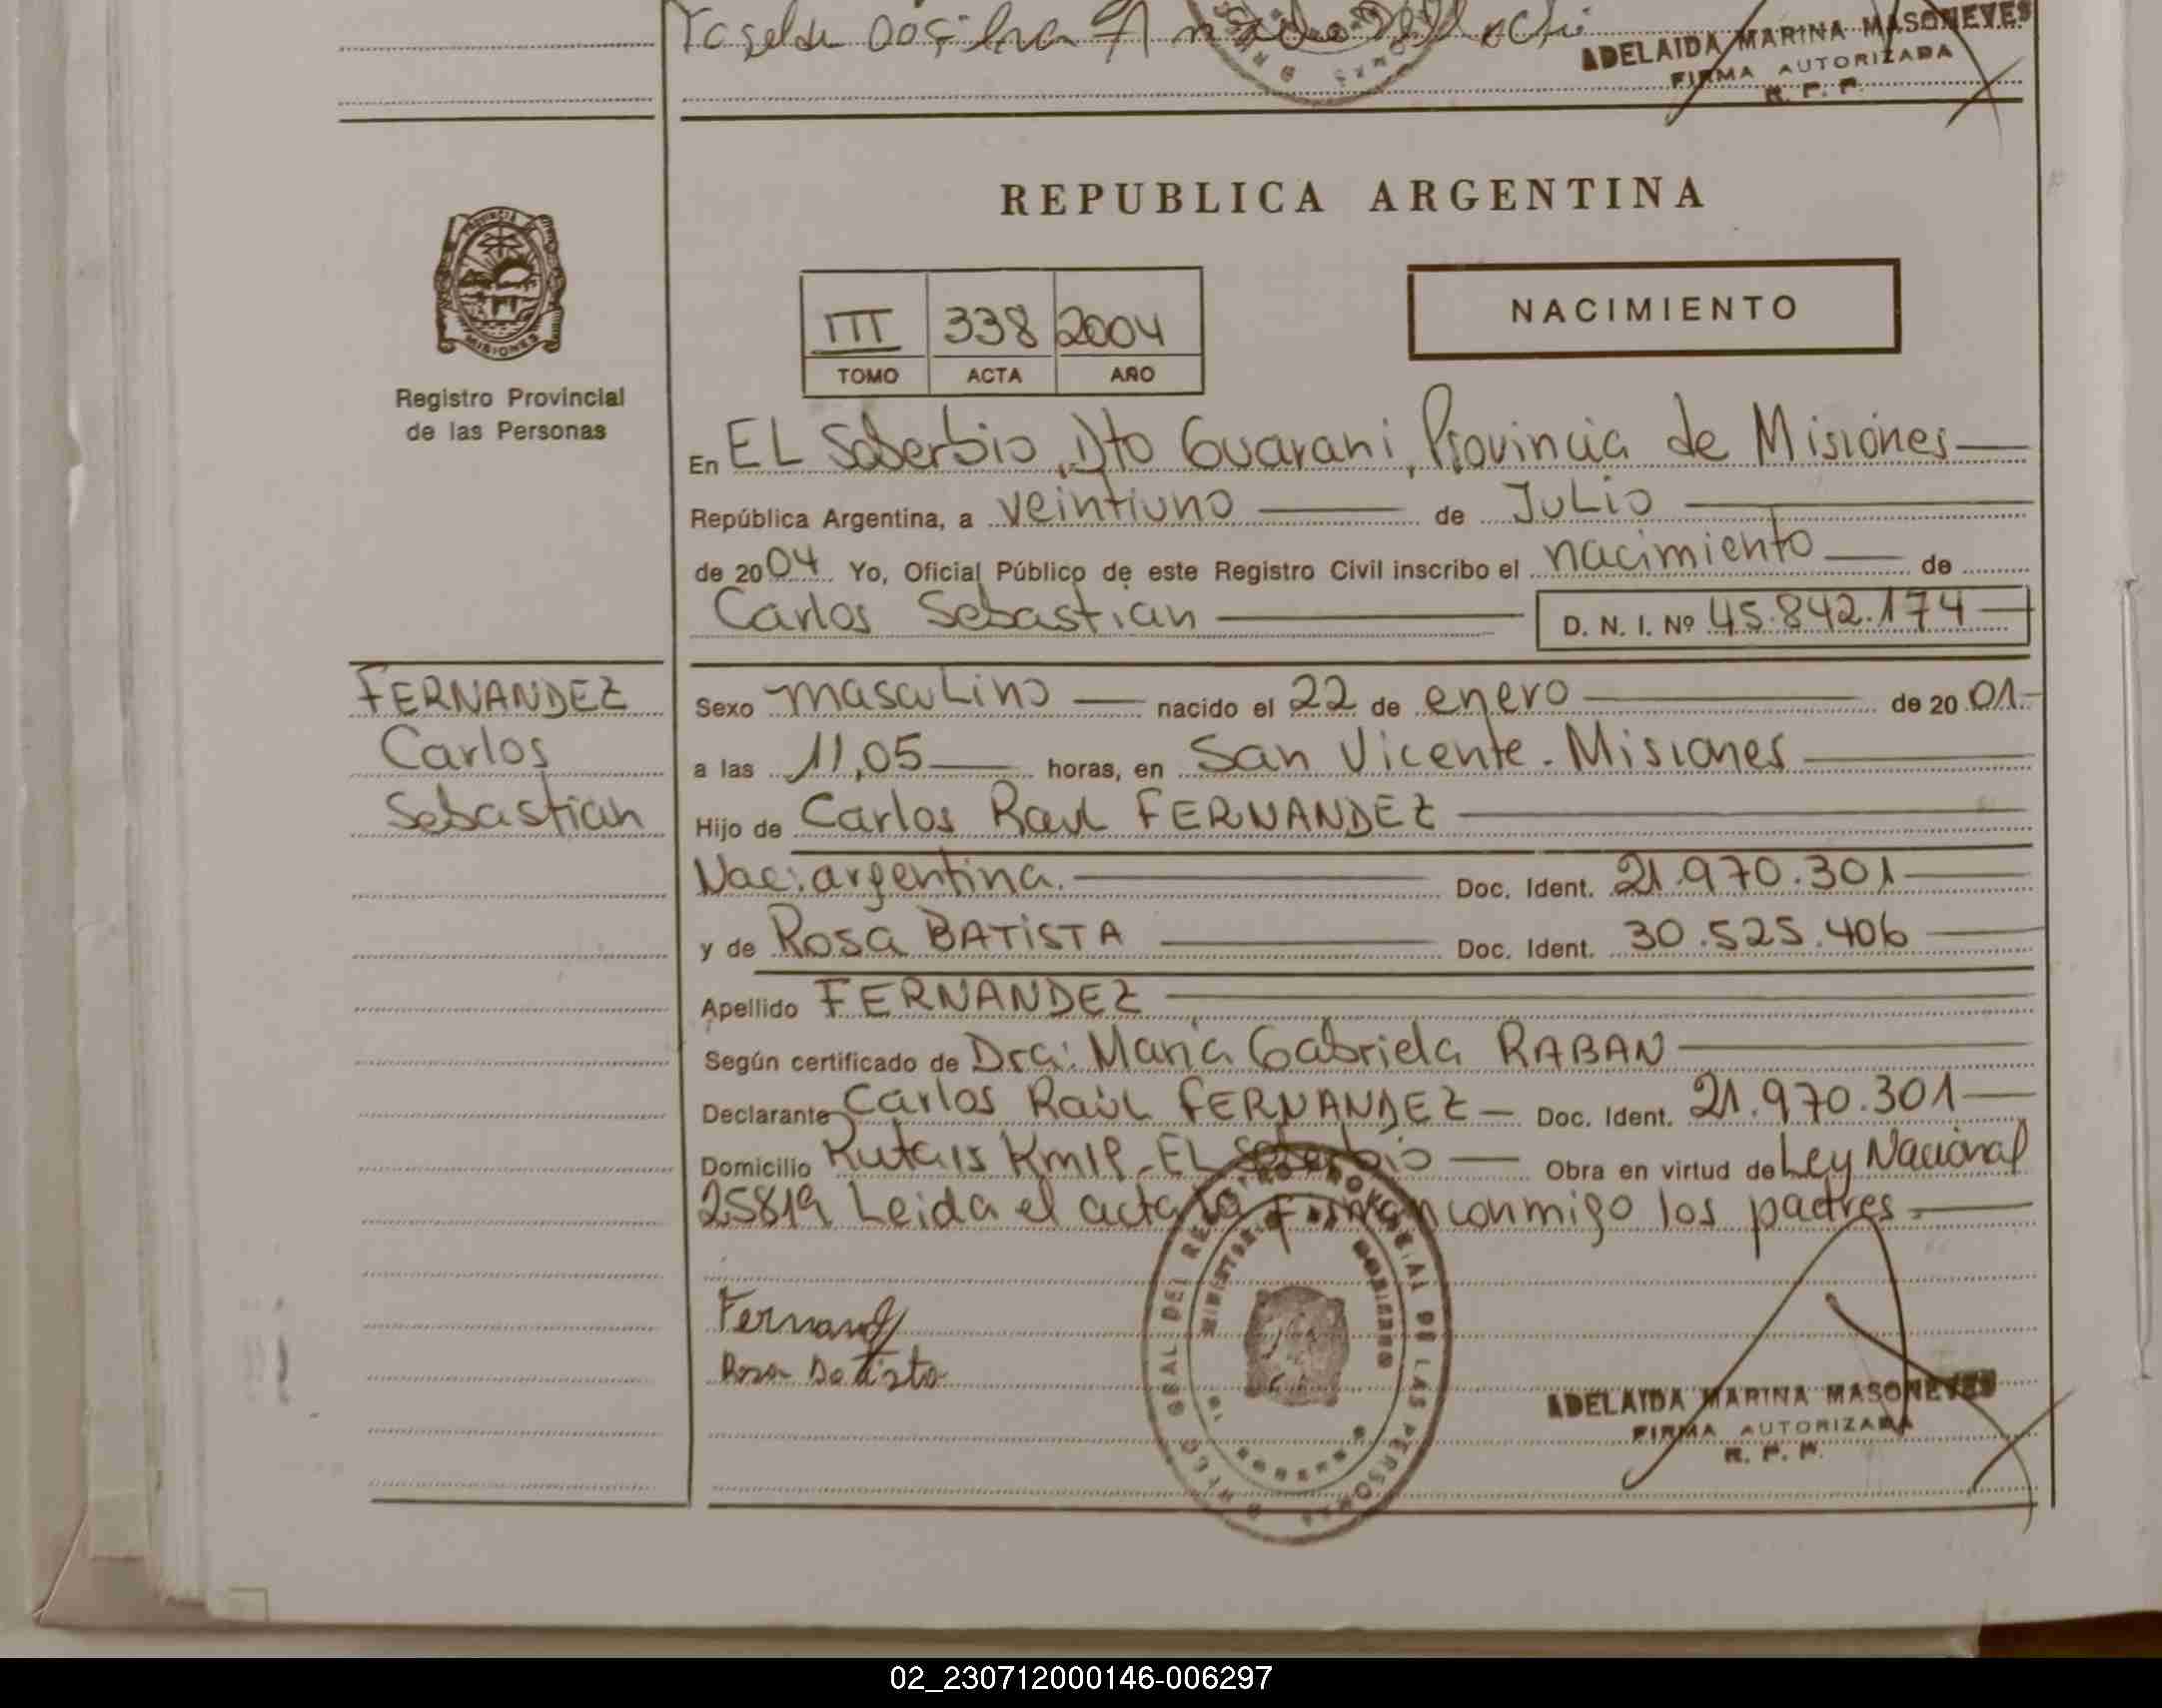 ADELAIDA MARINA MASONEVES
FIRMA AUTORIZADA
R. P. P.
REPUBLICA ARGENTINA
PROVINCIA DE
MISIONES
Registro Provincial
de las Personas
III 338 2004
TOMO ACTA AÑO
NACIMIENTO
En EL Soberbio, Dto Guarani, Provincia de Misiones
República Argentina, a veintiuno de Julio
de 2004 Yo, Oficial Público de este Registro Civil inscribo el nacimiento de
Carlos Sebastian D. N. I. Nº 45.842.174
FERNANDEZ
Carlos
Sebastian
Sexo masculino nacido el 22 de enero de 2001
a las 11,05 horas, en San Vicente - Misiones
Hijo de Carlos Raul FERNANDEZ
Nac: argentina. Doc. Ident. 21.970.301
y de Rosa BATISTA Doc. Ident. 30.525.406
Apellido FERNANDEZ
Según certificado de Dra: Maria Gabriela RABAN
Declarante Carlos Raúl FERNANDEZ Doc. Ident. 21.970.301
Domicilio Ruta 15 Km 18 - EL Soberbio Obra en virtud de Ley Nacional
25819 Leida el acta la firman conmigo los padres
Fernandez
Rosa Batista
REGISTRO PROVINCIAL DE LAS PERSONAS
MINISTERIO GOBIERNO
ADELAIDA MARINA MASONEVES
FIRMA AUTORIZADA
R. P. P.
02_230712000146-006297